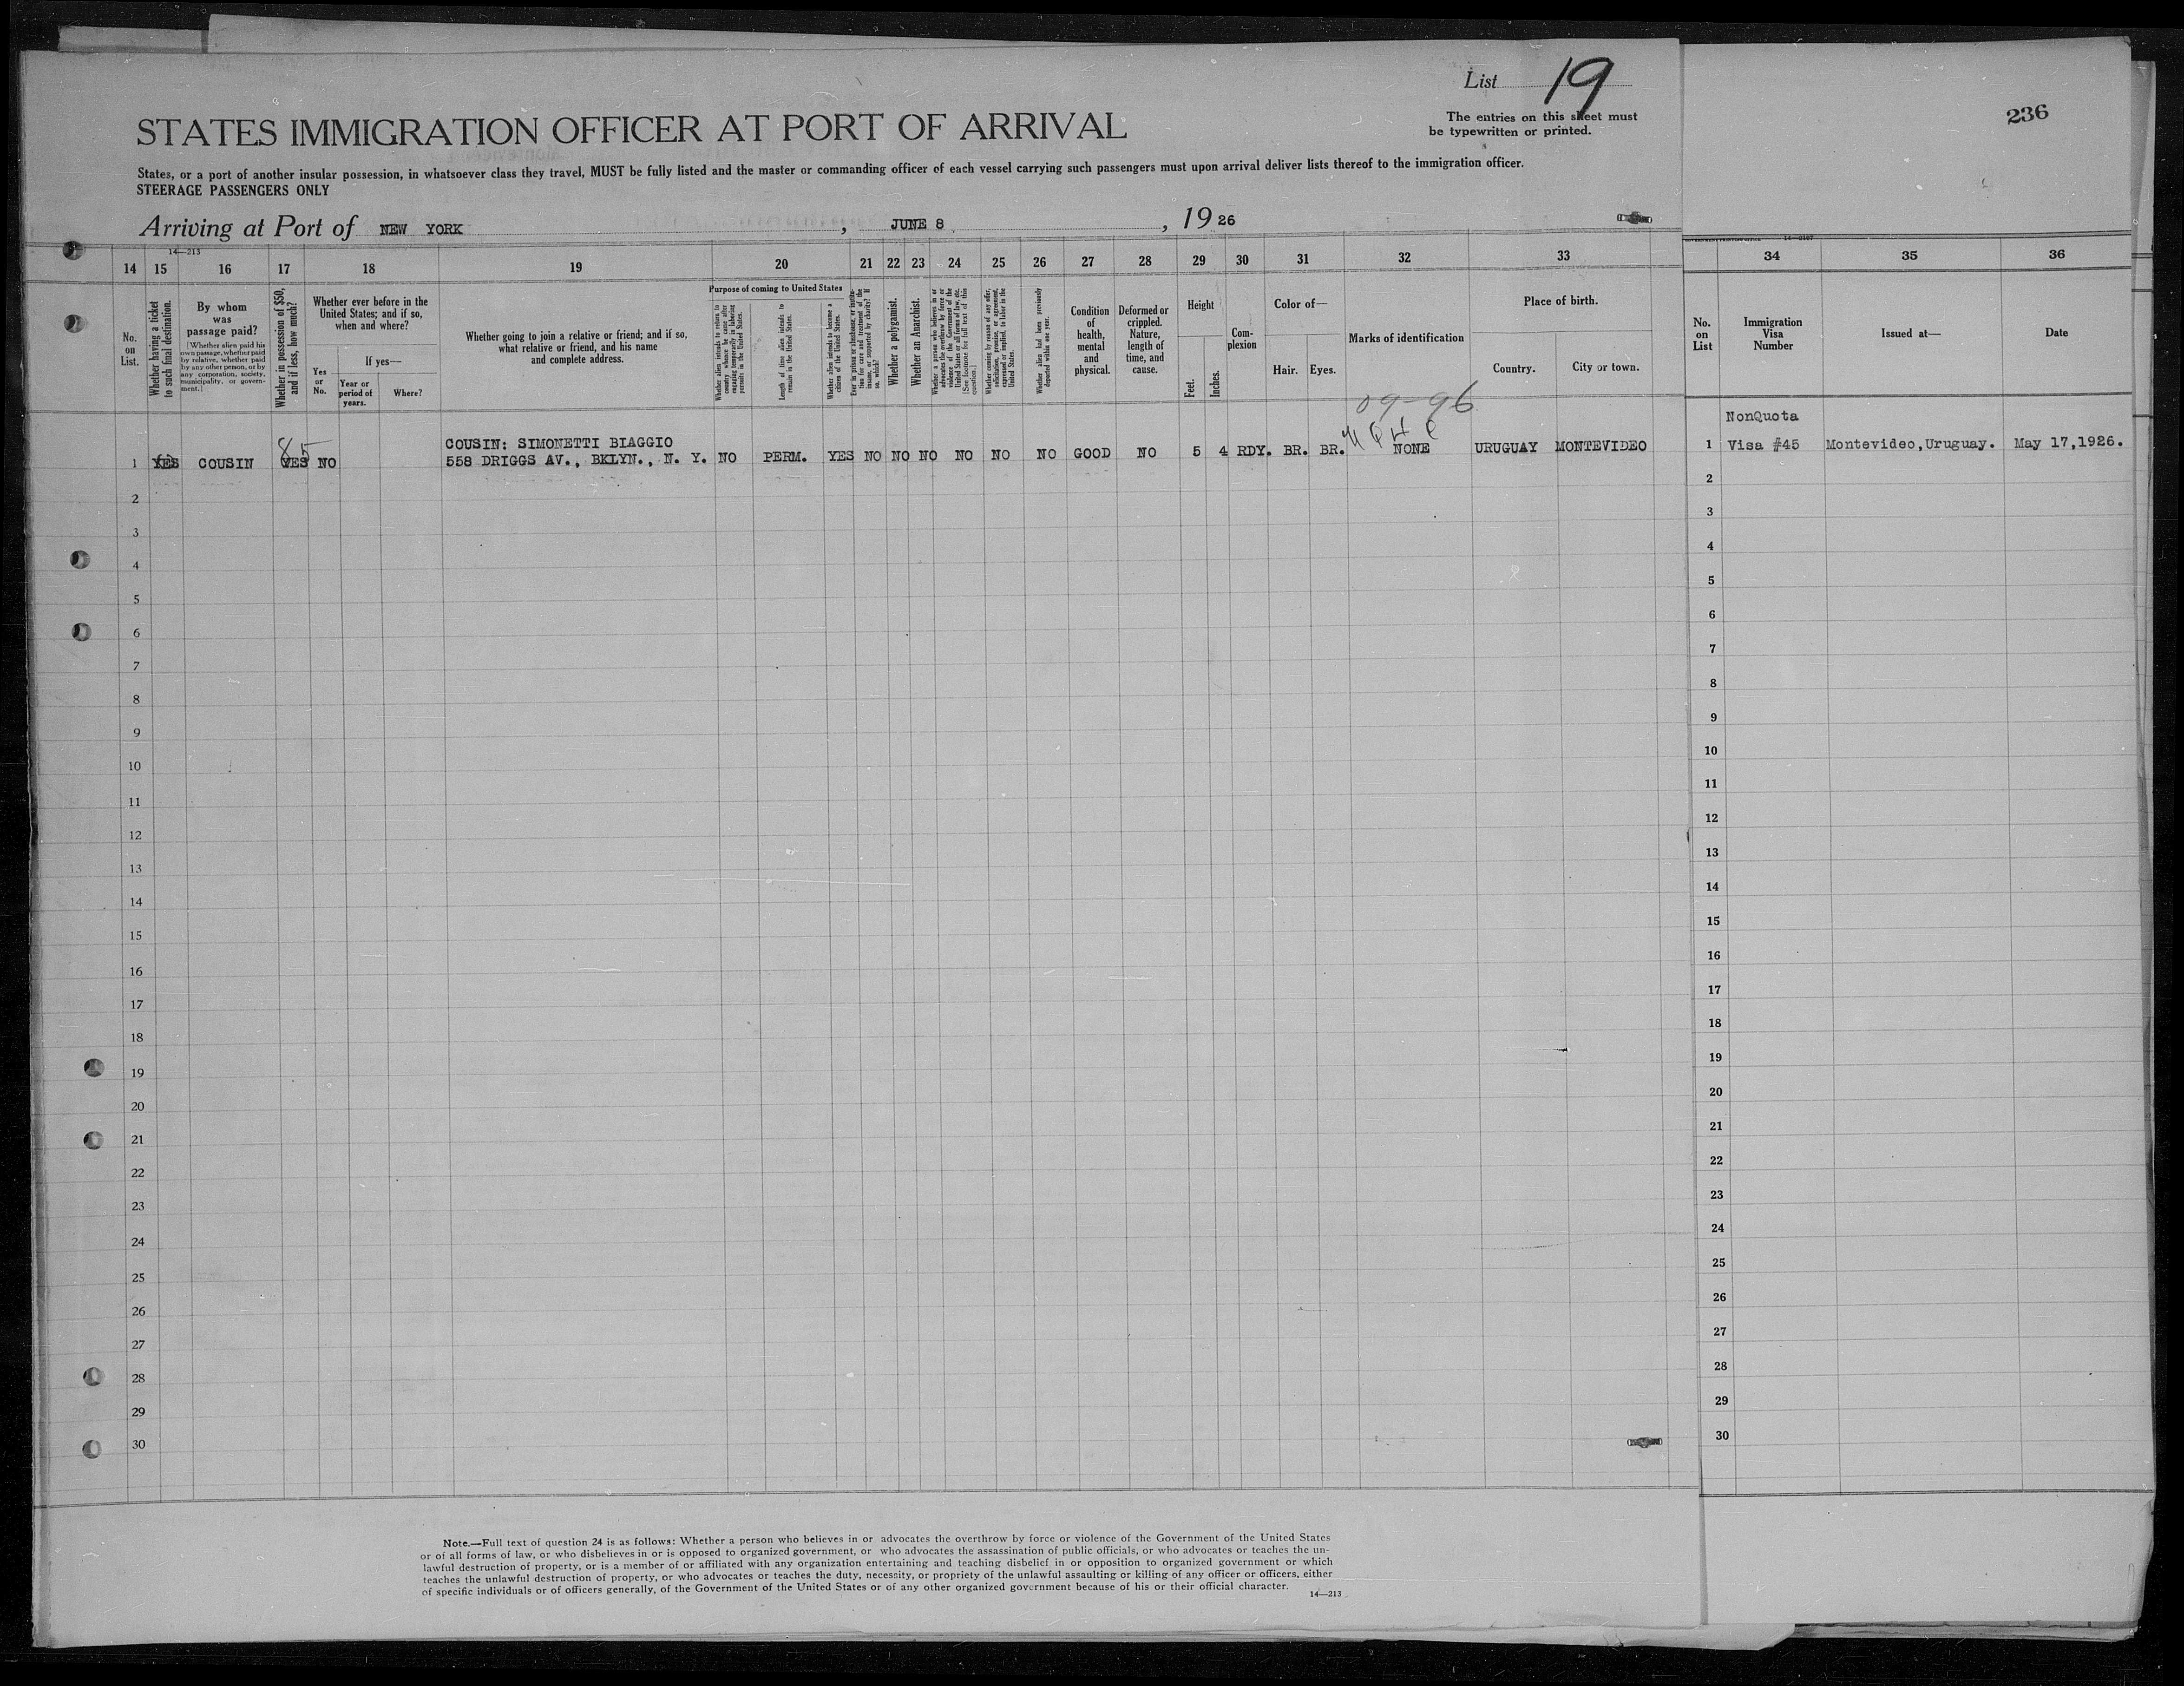 List 19
236
The entries on this sheet must
be typewritten or printed.
STATES IMMIGRATION OFFICER AT PORT OF ARRIVAL
States, or a port of another insular possession, in whatsoever class they travel, MUST be fully listed and the master or commanding officer of each vessel carrying such passengers must upon arrival deliver lists thereof to the immigration officer.
STEERAGE PASSENGERS ONLY
Arriving at Port of NEW YORK, JUNE 8, 19 26
14—213
14 15 16 17 18 19 20 21 22 23 24 25 26 27 28 29 30 31 32 33 34 35 36
No. on List.
Whether having a ticket to such final destination.
By whom was passage paid?
[Whether alien paid his own passage, whether paid by relative, whether paid by any other person, or by any corporation, society, municipality, or government.]
Whether in possession of $50, and if less, how much?
Whether ever before in the United States; and if so, when and where?
Yes or No.
If yes—
Year or period of years.
Where?
Whether going to join a relative or friend; and if so, what relative or friend, and his name and complete address.
Purpose of coming to United States
Whether alien intends to return to country whence he came after engaging temporarily in laboring pursuits in the United States.
Length of time alien intends to remain in the United States.
Whether alien intends to become a citizen of the United States.
Ever in prison or almshouse, or institution for care and treatment of the insane, or supported by charity? If so, which?
Whether a polygamist.
Whether an Anarchist.
Whether a person who believes in or advocates the overthrow by force or violence of the Government of the United States or all forms of law, etc. [See footnote for full text of this question.]
Whether coming by reason of any offer, solicitation, promise, or agreement, expressed or implied, to labor in the United States.
Whether alien had been previously deported within one year.
Condition of health, mental and physical.
Deformed or crippled. Nature, length of time, and cause.
Height
Feet. Inches.
Com-plexion
Color of—
Hair. Eyes.
Marks of identification
Place of birth.
Country. City or town.
No. on List
Immigration Visa Number
Issued at—
Date
09-96
NonQuota
COUSIN: SIMONETTI BIAGGIO
1 YES COUSIN YES 85 NO 558 DRIGGS AV., BKLYN., N. Y. NO PERM. YES NO NO NO NO NO NO GOOD NO 5 4 RDY. BR. BR. NONE URUGUAY MONTEVIDEO 1 Visa #45 Montevideo,Uruguay. May 17,1926.
2 2
3 3
4 4
5 5
6 6
7 7
8 8
9 9
10 10
11 11
12 12
13 13
14 14
15 15
16 16
17 17
18 18
19 19
20 20
21 21
22 22
23 23
24 24
25 25
26 26
27 27
28 28
29 29
30 30
Note.—Full text of question 24 is as follows: Whether a person who believes in or advocates the overthrow by force or violence of the Government of the United States
or of all forms of law, or who disbelieves in or is opposed to organized government, or who advocates the assassination of public officials, or who advocates or teaches the un-
lawful destruction of property, or is a member of or affiliated with any organization entertaining and teaching disbelief in or opposition to organized government or which
teaches the unlawful destruction of property, or who advocates or teaches the duty, necessity, or propriety of the unlawful assaulting or killing of any officer or officers, either
of specific individuals or of officers generally, of the Government of the United States or of any other organized government because of his or their official character.
14—213